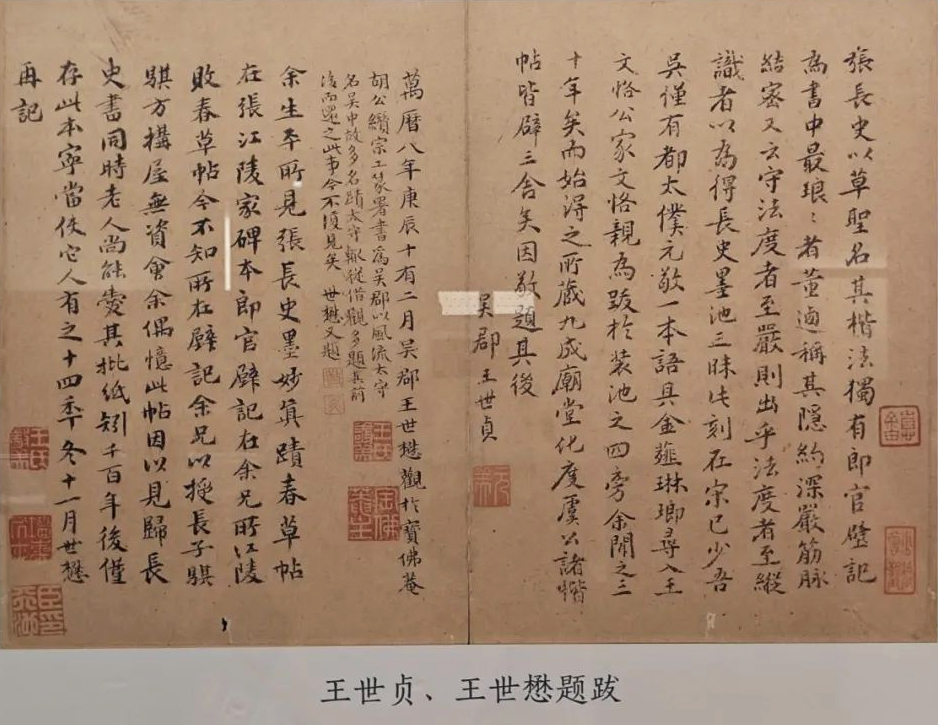 張長史以草聖名其楷法獨有郎官壁記
為書中最琅〻者董逌稱其隱約深嚴筋脉
結密又云守法度者至嚴則出乎法度者至縱
識者以為得長史墨池三昧此刻在宋已少吾
吳僅有都太僕元敬一本語具金薤琳琅尋入王
文恪公家文恪親為跋於裝池之四旁余聞之三
十年矣而始得之所藏九成廟堂化度虞公諸楷
帖皆辟三舍矣因敬題其後
吴郡王世贞
萬曆八年庚辰十有二月吴郡王世懋觀於寶佛菴
胡公纘宗工篆署書為吴郡以風流太守
名吴中故多名蹟太守輒從借觀多題其前
後而還之此事今不復見矣 世懋又題
余生平所見張長史墨妙真蹟春草帖
在張江陵家碑本郎官壁記在余兄所江陵
敗春草帖今不知所在壁記余兄以授長子騏
騏方構屋無資會余偶憶此帖因以見歸長
史書同時老人尚能愛其批紙矧千百年後僅
存此本寧當使它人有之十四年冬十一月世懋
再記
王世贞、王世懋题跋